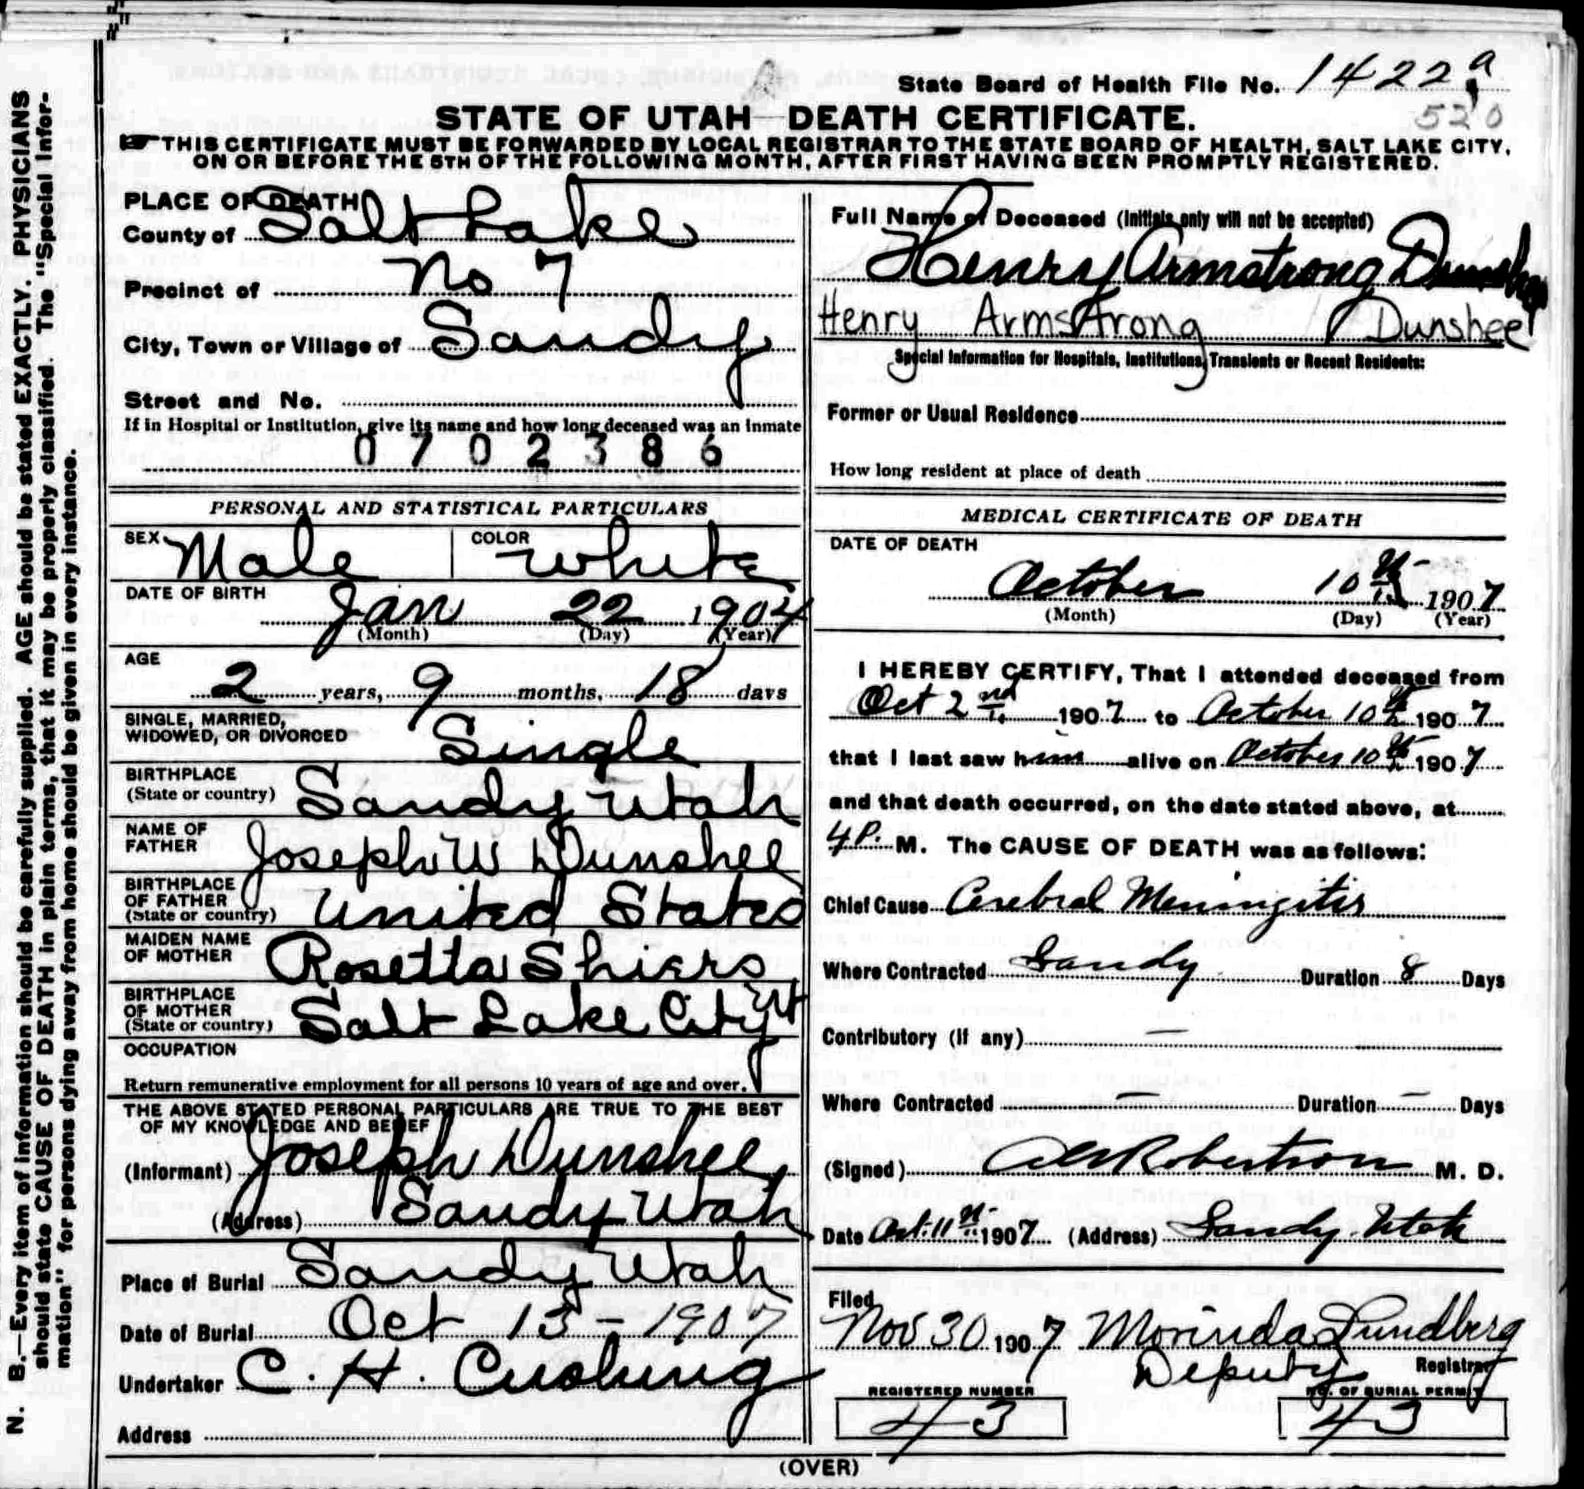 State Board of Health File No. 1422 a
520
STATE OF UTAH—DEATH CERTIFICATE.
☞ THIS CERTIFICATE MUST BE FORWARDED BY LOCAL REGISTRAR TO THE STATE BOARD OF HEALTH, SALT LAKE CITY,
ON OR BEFORE THE 5TH OF THE FOLLOWING MONTH, AFTER FIRST HAVING BEEN PROMPTLY REGISTERED.
N. B.—Every item of information should be carefully supplied. AGE should be stated EXACTLY. PHYSICIANS
should state CAUSE OF DEATH in plain terms, that it may be properly classified. The "Special Infor-
mation" for persons dying away from home should be given in every instance.
PLACE OF DEATH
County of Salt Lake
Precinct of No 7
City, Town or Village of Sandy
Street and No.
If in Hospital or Institution, give its name and how long deceased was an Inmate
0702386
PERSONAL AND STATISTICAL PARTICULARS
SEX Male COLOR White
DATE OF BIRTH
Jan 22 1904
(Month) (Day) (Year)
AGE
2 years, 9 months, 18 days
SINGLE, MARRIED,
WIDOWED, OR DIVORCED Single
BIRTHPLACE
(State or country) Sandy Utah
NAME OF
FATHER Joseph W Dunshee
BIRTHPLACE
OF FATHER
(State or country) United States
MAIDEN NAME
OF MOTHER Rosetta Shiers
BIRTHPLACE
OF MOTHER
(State or country) Salt Lake City Ut
OCCUPATION
Return remunerative employment for all persons 10 years of age and over.
THE ABOVE STATED PERSONAL PARTICULARS ARE TRUE TO THE BEST
OF MY KNOWLEDGE AND BELIEF
(Informant) Joseph Dunshee
(Address) Sandy Utah
Place of Burial Sandy Utah
Date of Burial Oct 13-1907
Undertaker C. H. Cushing
Address
Full Name of Deceased (Initials only will not be accepted)
Henry Armstrong Dunshee
Henry Armstrong Dunshee
Special Information for Hospitals, Institutions, Transients or Recent Residents:
Former or Usual Residence
How long resident at place of death
MEDICAL CERTIFICATE OF DEATH
DATE OF DEATH
October 10th 1907
(Month) (Day) (Year)
I HEREBY CERTIFY, That I attended deceased from
Oct 2nd 1907 to October 10th 1907
that I last saw him alive on October 10th 1907
and that death occurred, on the date stated above, at
4 P. M. The CAUSE OF DEATH was as follows:
Chief Cause Cerebral Meningitis
Where Contracted Sandy Duration 8 Days
Contributory (if any) —
Where Contracted — Duration — Days
(Signed) Robertson M. D.
Date Oct. 11th 1907 (Address) Sandy. Utah
Filed
Nov 30 1907 Morinda Lundberg
Deputy Registrar
REGISTERED NUMBER NO. OF BURIAL PERMIT
43 43
(OVER)